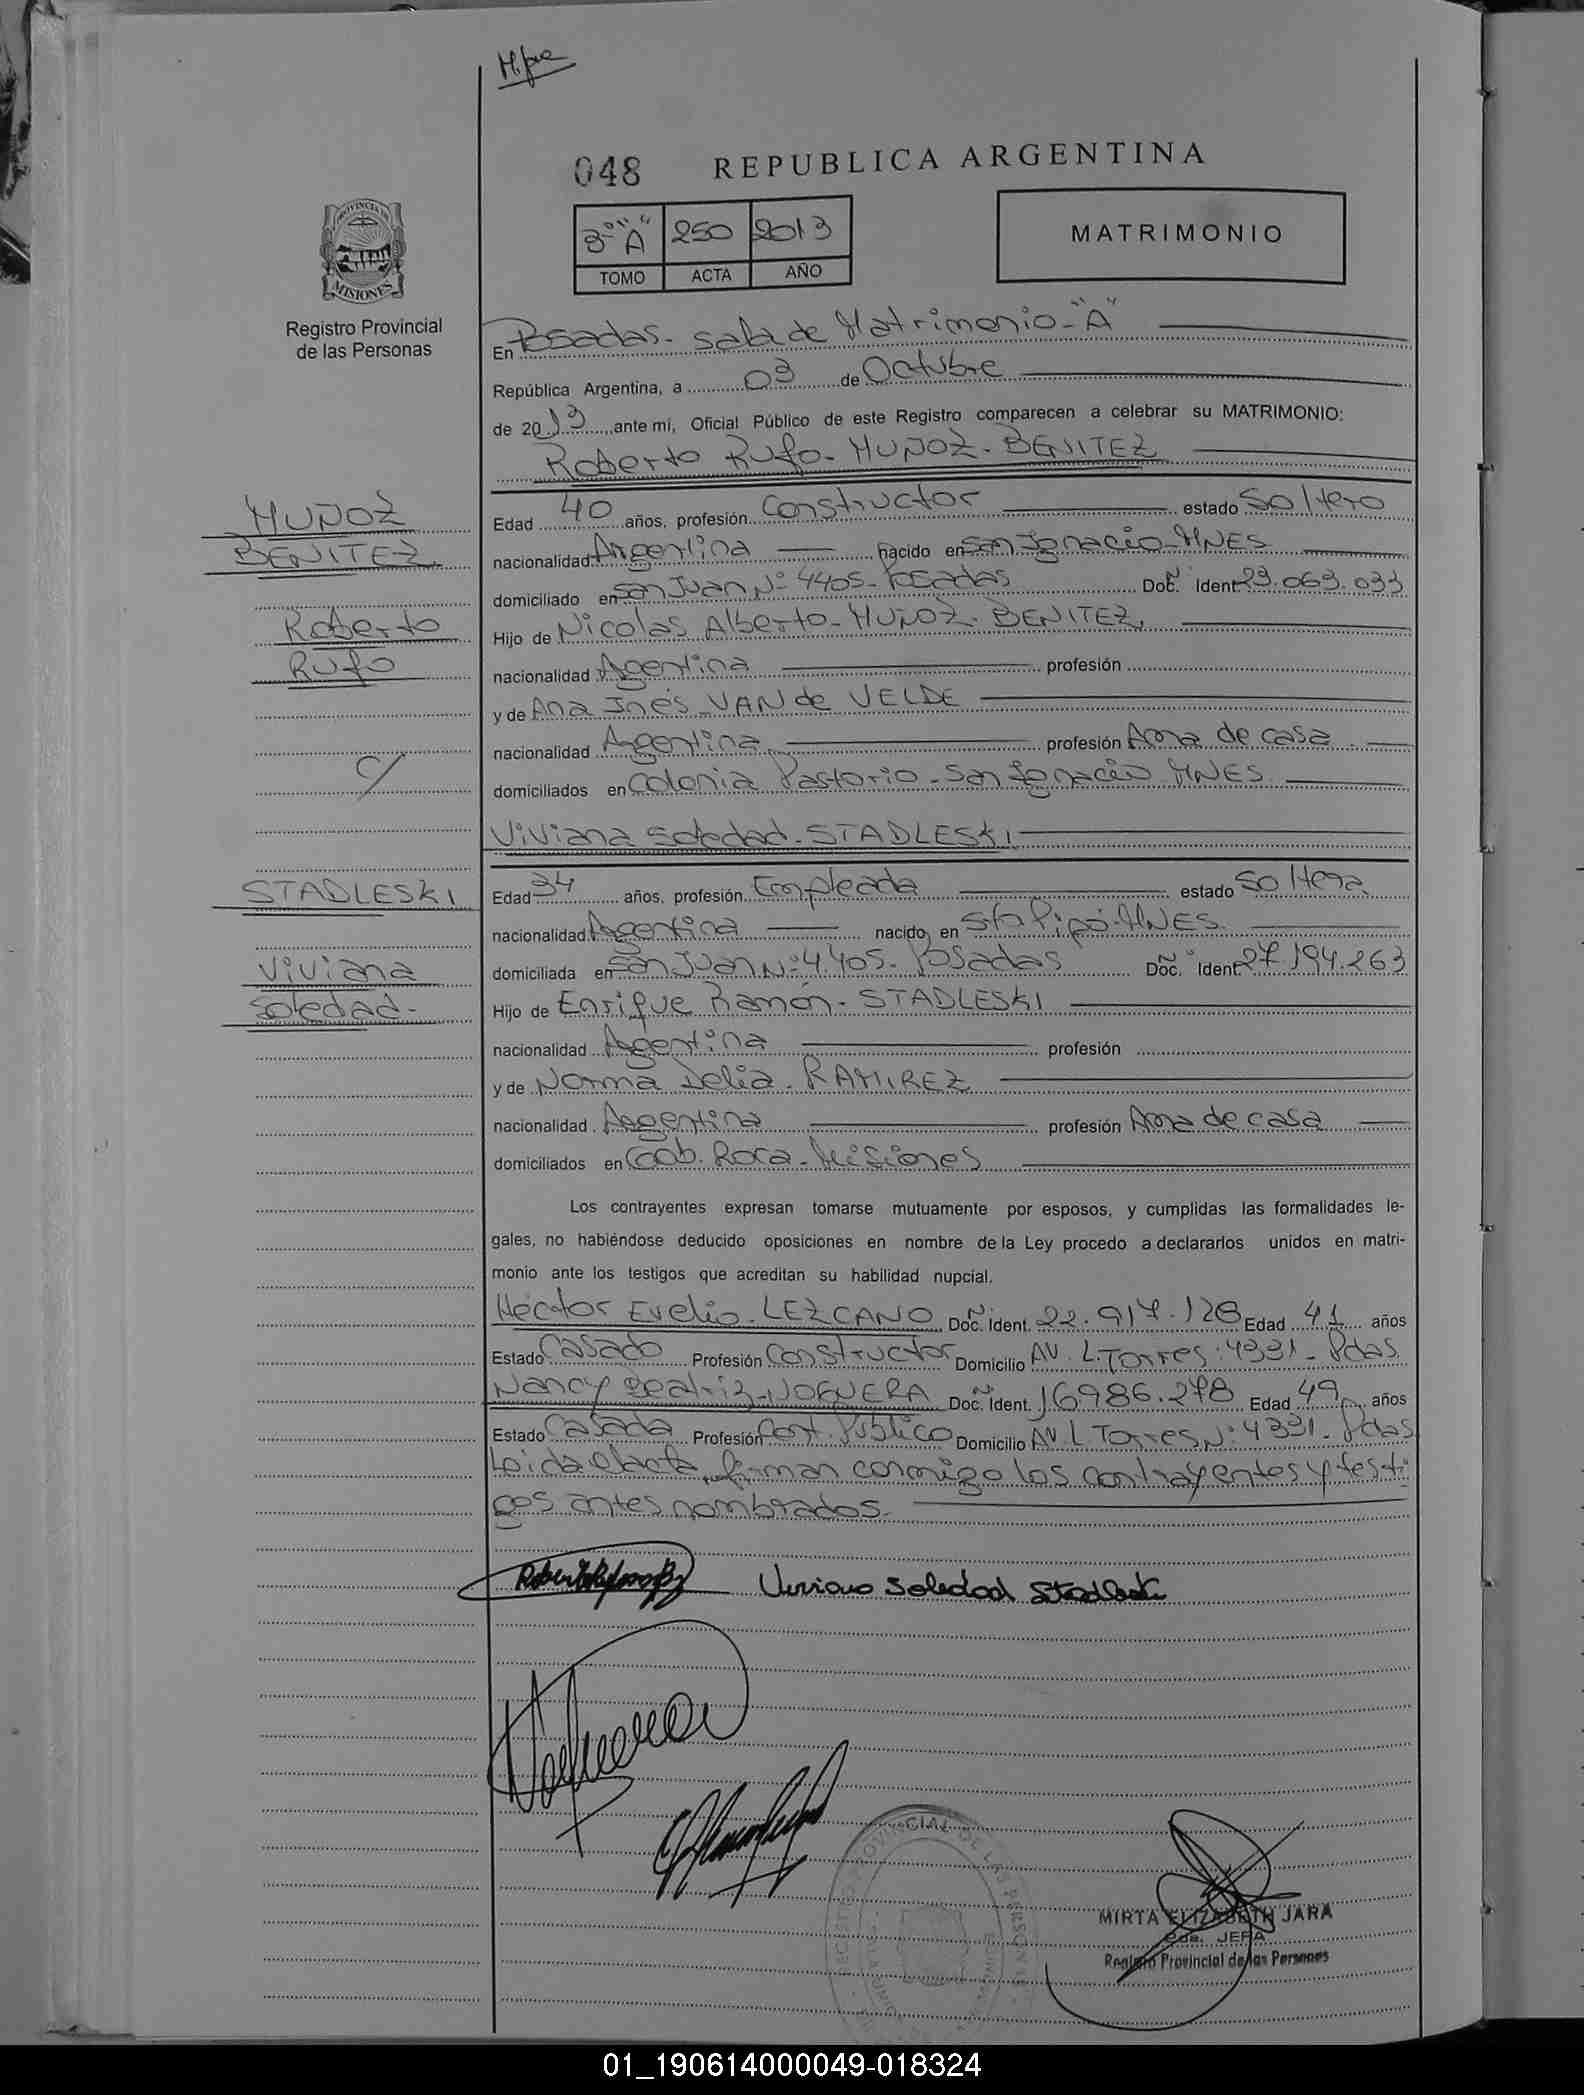 048 REPUBLICA ARGENTINA
3º "A" 250 2013
TOMO ACTA AÑO
MATRIMONIO
PROVINCIA DE
MISIONES
Registro Provincial
de las Personas
En Posadas - sala de Matrimonio - "A"
República Argentina, a 03 de Octubre
de 2013, ante mí, Oficial Público de este Registro comparecen a celebrar su MATRIMONIO:
Roberto Rufo - MUÑOZ - BENITEZ
MUÑOZ
BENITEZ
Roberto
Rufo
c/
Edad 40 años, profesión Constructor estado Soltero
nacionalidad Argentina nacido en San Ignacio - MNES
domiciliado en San Juan Nº 4405 - Posadas Doc. Ident 23.063.033
Hijo de Nicolas Alberto - MUÑOZ - BENITEZ
nacionalidad Agentina profesión
y de Ana Inés - VAN de VELDE
nacionalidad Argentina profesión Ama de casa
domiciliados en Colonia Pastorio - San Ignacio MNES
Viviana Soledad - STADLESKI
STADLESKI
Viviana
Soledad -
Edad 34 años, profesión Empleada estado Soltera
nacionalidad Argentina nacido en Sto Pipó - MNES
domiciliada en San Juan Nº 4405 - Posadas Doc. Ident 27.194.263
Hijo de Enrique Ramón - STADLESKI
nacionalidad Argentina profesión
y de Norma Delia - RAMIREZ
nacionalidad Argentina profesión Ama de casa
domiciliados en Gob. Roca - Misiones
Los contrayentes expresan tomarse mutuamente por esposos, y cumplidas las formalidades le-
gales, no habiéndose deducido oposiciones en nombre de la Ley procedo a declararlos unidos en matri-
monio ante los testigos que acreditan su habilidad nupcial.
Héctor Evelio - LEZCANO Doc. Ident. 22.917.128 Edad 41 años
Estado Casado Profesión Constructor Domicilio AV. L. Torres: 4331 - Pdas
Nancy Beatriz - NOGUERA Doc. Ident. 16986.278 Edad 49 años
Estado Casada Profesión Cont. Público Domicilio AV. L Torres Nº 4331 - Pdas
Leida el acta, firman conmigo los contrayentes y testi-
gos antes nombrados -
Viviana Soledad Stadleski
REGISTRO PROVINCIAL DE LAS PERSONAS
MIRTA ELIZABETH JARA
JEFA
Registro Provincial de las Personas
01_190614000049-018324